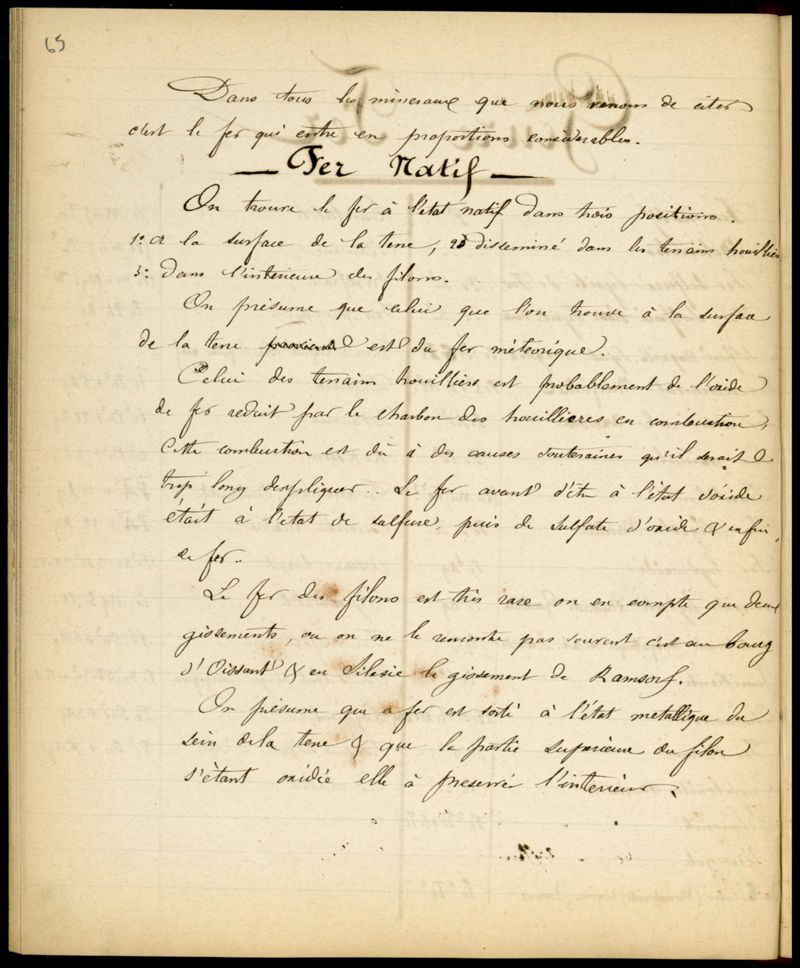 65
Dans tous les mineraux que nous venons de citer
c'est le fer qui entre en proportions considerables.
— Fer Natif —
On trouve le fer à l'état natif dans trois positions.
1º A la surface de la terre, 2º disseminé dans les terrains houilliers
3º dans l'interieure des filons.
On présume que celui que l'on trouve à la surface
de la terre est du fer méteorique.
Celui des terrains houilliers est probablement de l'oxide
de fer reduit par le charbon des houillieres en combustion,
cette combustion est dû à des causes souteraines qu'il serait
trop long d'expliquer.. Le fer avant d'être à l'état d'oxide
était à l'etat de sulfure, puis de sulfate d'oxide & enfin
de fer..
Le fer des filons est très rare on en compte que deux
gissements, ou on ne le rencontre pas souvent c'est au bourg
d'Oissant & en Silesie le gissement de Ramsorf.
On présume que ce fer est sorti à l'état metallique du
sein de la terre & que la partie superieure du filon
s'étant oxidée elle à preservé l'interieur.